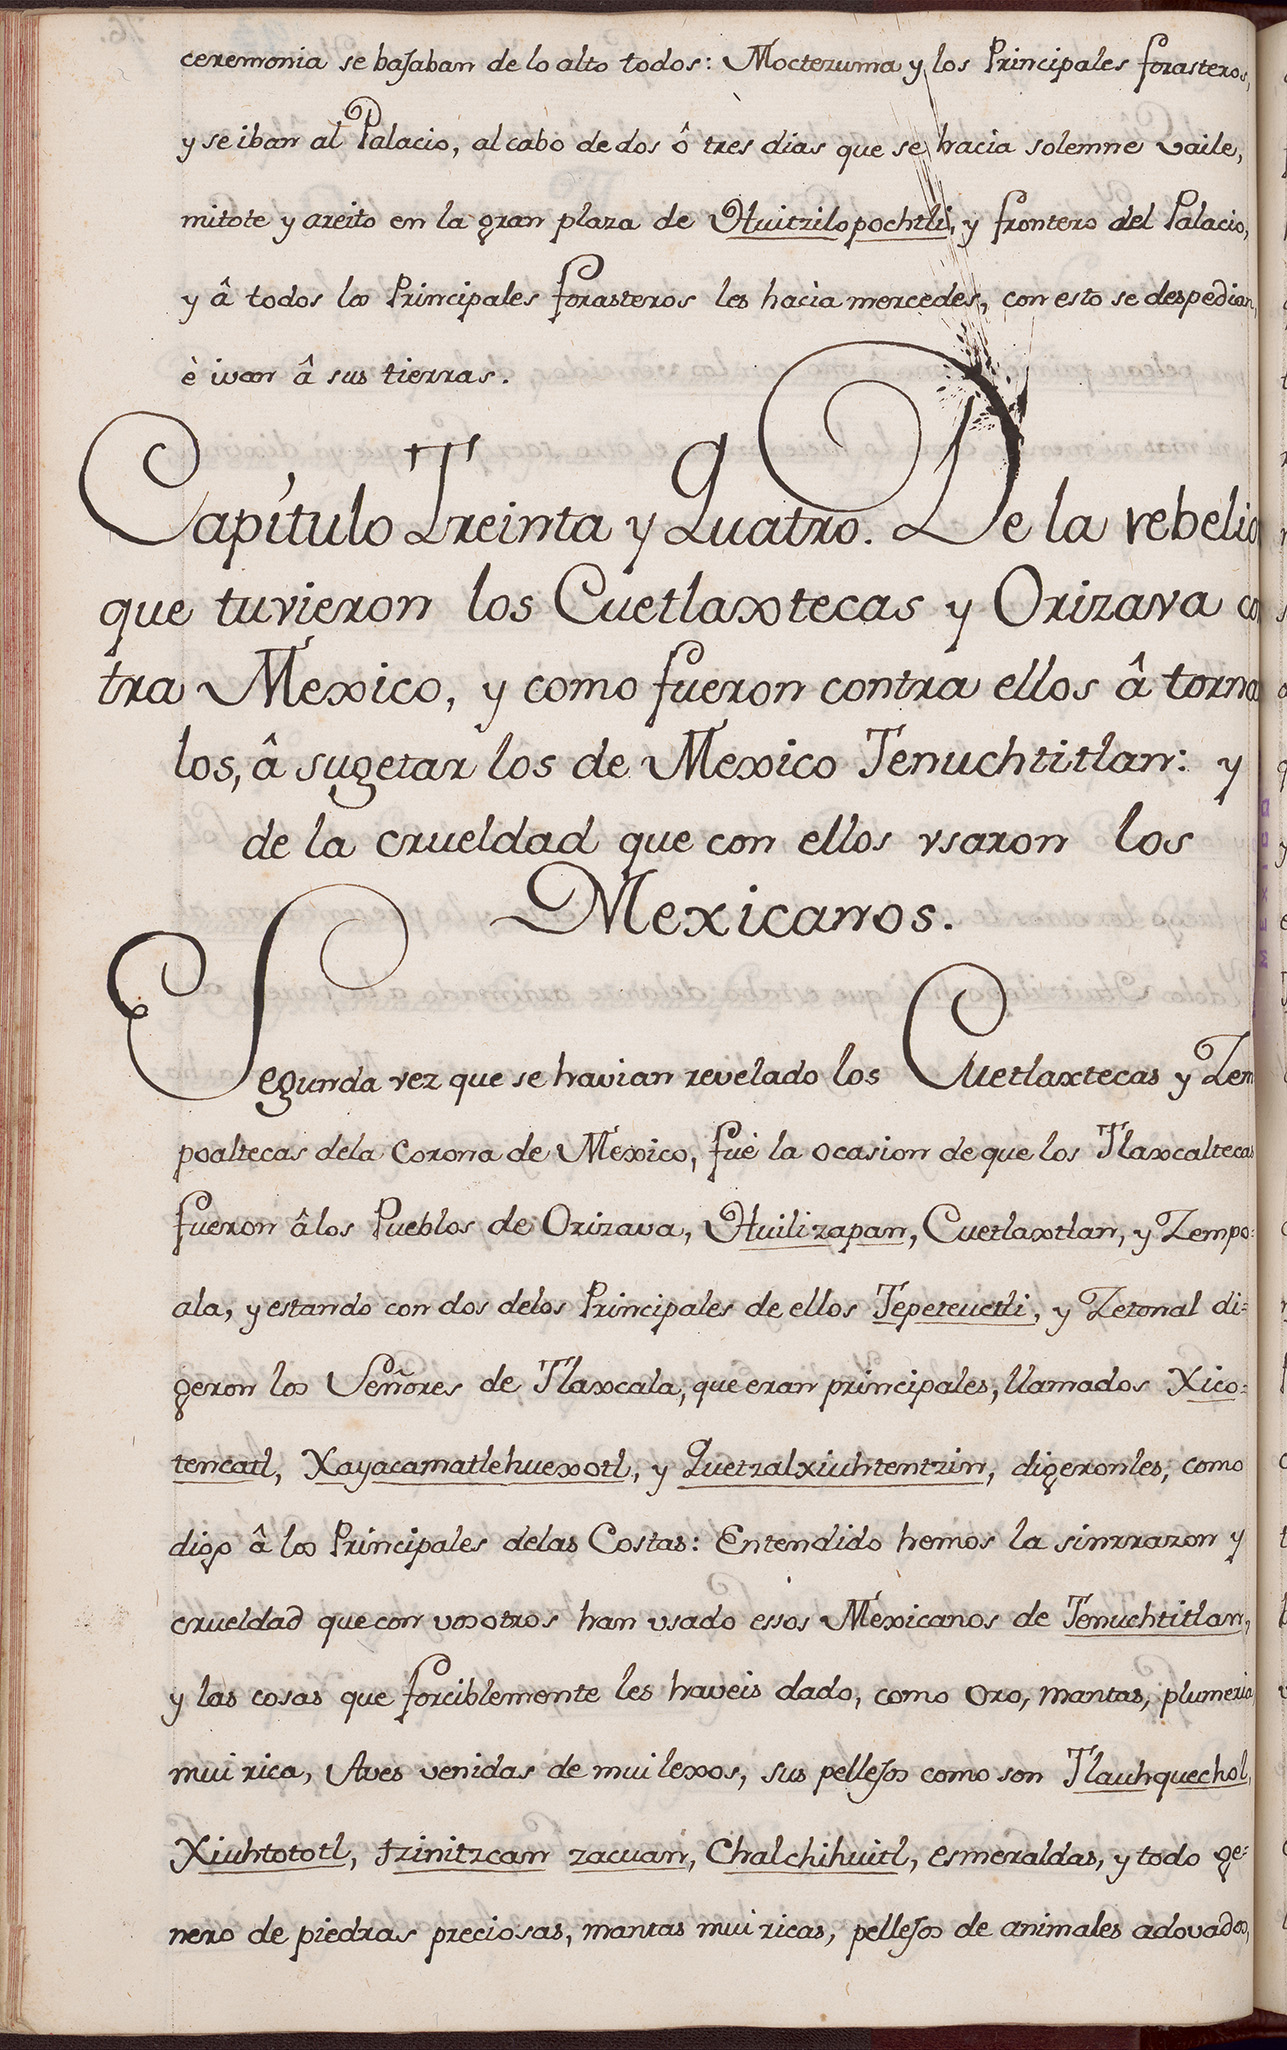 ceremonia se bajaban de lo alto todos: Moctezuma y los Principales forasteros,
y se iban al Palacio, al cabo de dos ô tres dias que se hacia solemne vaile,
mitote y areito en la gran plaza de Huitzilopochtli, y frontero del Palacio,
y â todos los Principales forasteros les hacia mercedes, con esto se despedian,
è ivan â sus tierras.
Capítulo Treinta y Quatro. De la rebelio
que tuvieron los Cuetlaxtecas y Orizava co
tra Mexico, y como fueron contra ellos â torna
los, â sugetar los de Mexico Tenuchtitlan: y
de la crueldad que con ellos vsaron los
Mexicanos.
Segunda vez que se havian revelado los Cuetlaxtecas y Zem
poaltecas dela Corona de Mexico, fuè la ocasion de que los Tlaxcaltecas
fueron âlos Pueblos de Orizava, Huilizapan, Cuetlaxtlan, y Zempo=
ala, y estando con dos delos Principales de ellos Tepeteuctli, y Zetonal di=
geron los Señores de Tlaxcala, que eran principales, llamados Xico=
tencatl, Xayacamatlehuexotl, y Quetzalxiuhtentzin, digeronles, como
digo â los Principales delas Costas: Entendido hemos la sinrrazon y
crueldad que con vosotros han usado essos Mexicanos de Tenuchtitlan,
y las cosas que forciblemente les haveis dado, como Oro, mantas, plumeria
mui rica, Aves venidas de mui lexos, sus pellejos como son Tlauhquechol,
Xiuhtototl, tzinitzcan zacuan, Chalchihuitl, esmeraldas, y todo ge=
nero de piedras preciosas, mantas mui ricas, pellejos de animales adovados,